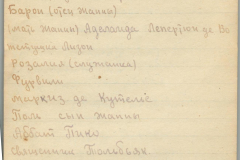 Барон (отец Жанны)
(мать Жанны) Аделаида Лепертюи де Во
Лизон
Розалия (служанка)
Фурвиль
маркиз де Кутелье
Поль сын Жанны
Аббат Пико
священник Тольбьяк